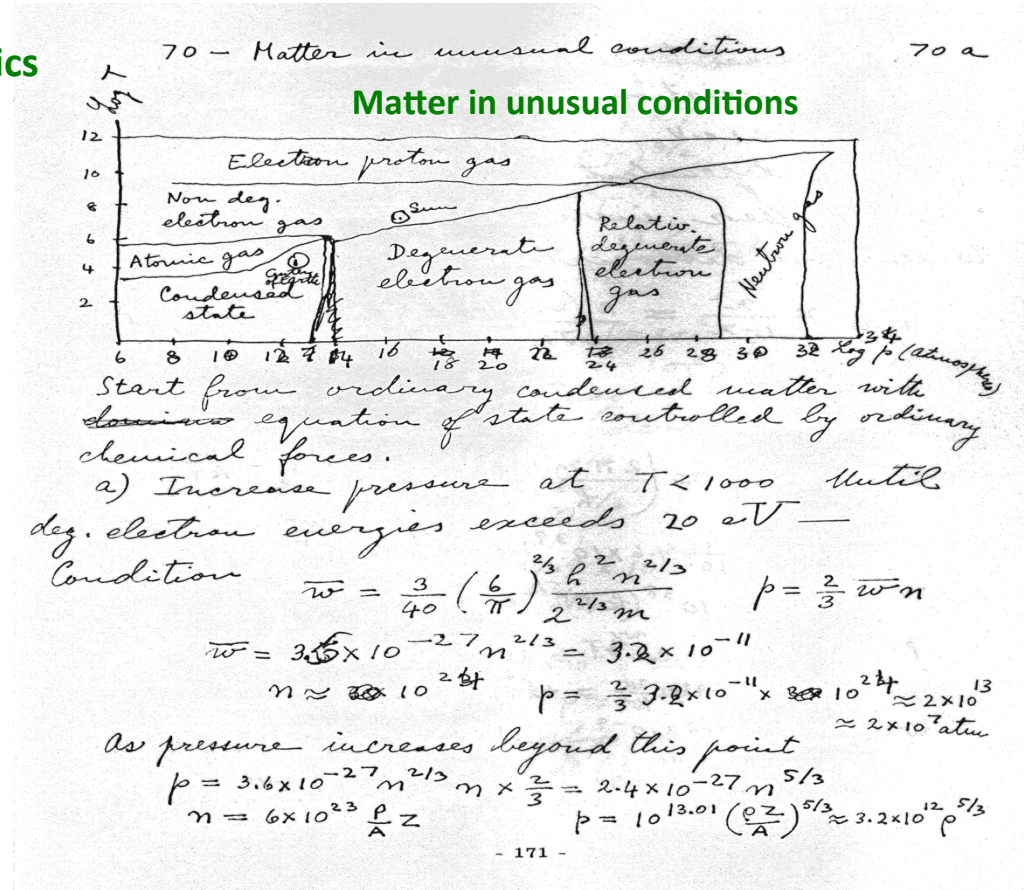 ics
70 – Matter in unusual conditions 70 a
Matter in unusual conditions
Log T
12
10
8
6
4
2
Electron proton gas
Non deg.
electron gas
Sun
Atomic gas
Center
of Earth
Condensed
state
Degenerate
electron gas
Relativ.
degenerate
electron
gas
Neutron gas
6 8 10 12 14 16 18 20 22 24 26 28 30 32 34
Log p (atmospheres)
Start from ordinary condensed matter with
equation of state controlled by ordinary
chemical forces.
a) Increase pressure at T < 1000 Until
deg. electron energies exceeds 20 eV —
Condition
w̄ = 3/40 (6/π)^2/3 h^2 n^2/3 / 2^2/3 m p = 2/3 w̄ n
w̄ = 3.6 × 10^-27 n^2/3 = 3.2 × 10^-11
n ≈ 10^24 p = 2/3 3.2 × 10^-11 × 10^24 ≈ 2 × 10^13
≈ 2 × 10^7 atm
As pressure increases beyond this point
p = 3.6 × 10^-27 n^2/3 n × 2/3 = 2.4 × 10^-27 n^5/3
n = 6 × 10^23 ρ/A Z p = 10^13.01 (ρZ/A)^5/3 ≈ 3.2 × 10^12 ρ^5/3
- 171 -